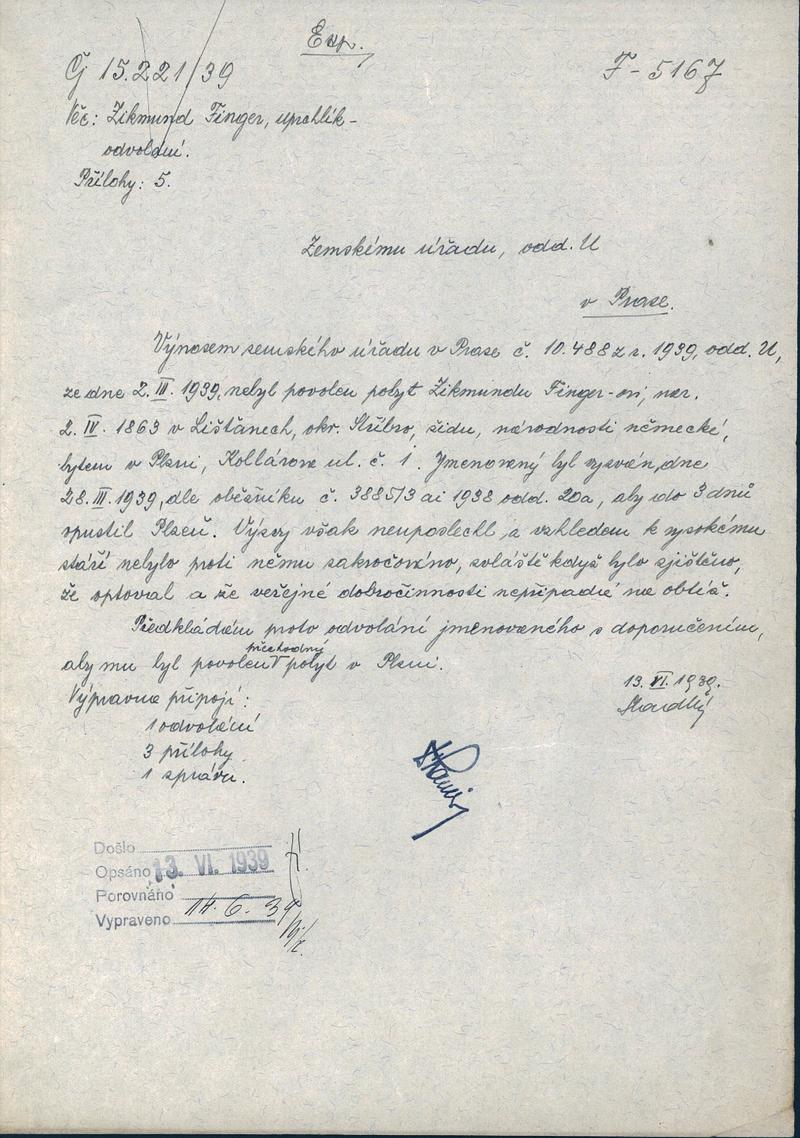 Exp.
Čj 15.221/39
F-5167
Věc: Zikmund Finger, uprchlík-
odvolání.
Přílohy: 5.
Zemskému úřadu, odd. U
v Praze.
Výnosem zemského úřadu v Praze č. 10.488 z r. 1939, odd. U,
ze dne 2. III. 1939, nebyl povolen pobyt Zikmundu Finger-ovi, nar.
2. IV. 1863 v Lištanech, okr. Stříbro, židu, národnosti německé,
bytem v Plzni, Kollárova ul. č. 1. Jmenovaný byl vyzván, dne
28. III. 1939, dle oběžníku č. 3885/3 ai 1938 odd. 20a, aby do 3 dnů
opustil Plzeň. Výzvy však neuposlechl a vzhledem k vysokému
stáří nebylo proti němu zakročováno, zvláště když bylo zjištěno,
že optoval a že veřejné dobročinnosti nepřipadá na obtíž.
Předkládám proto odvolání jmenovaného s doporučením,
přechodný
aby mu byl povolen pobyt v Plzni.
13. VI. 1939.
Výpravna připojí:
1 odvolání
3 přílohy
1 zprávu.
Došlo
Opsáno 13. VI. 1939
Porovnáno
Vypraveno 14. 6. 39